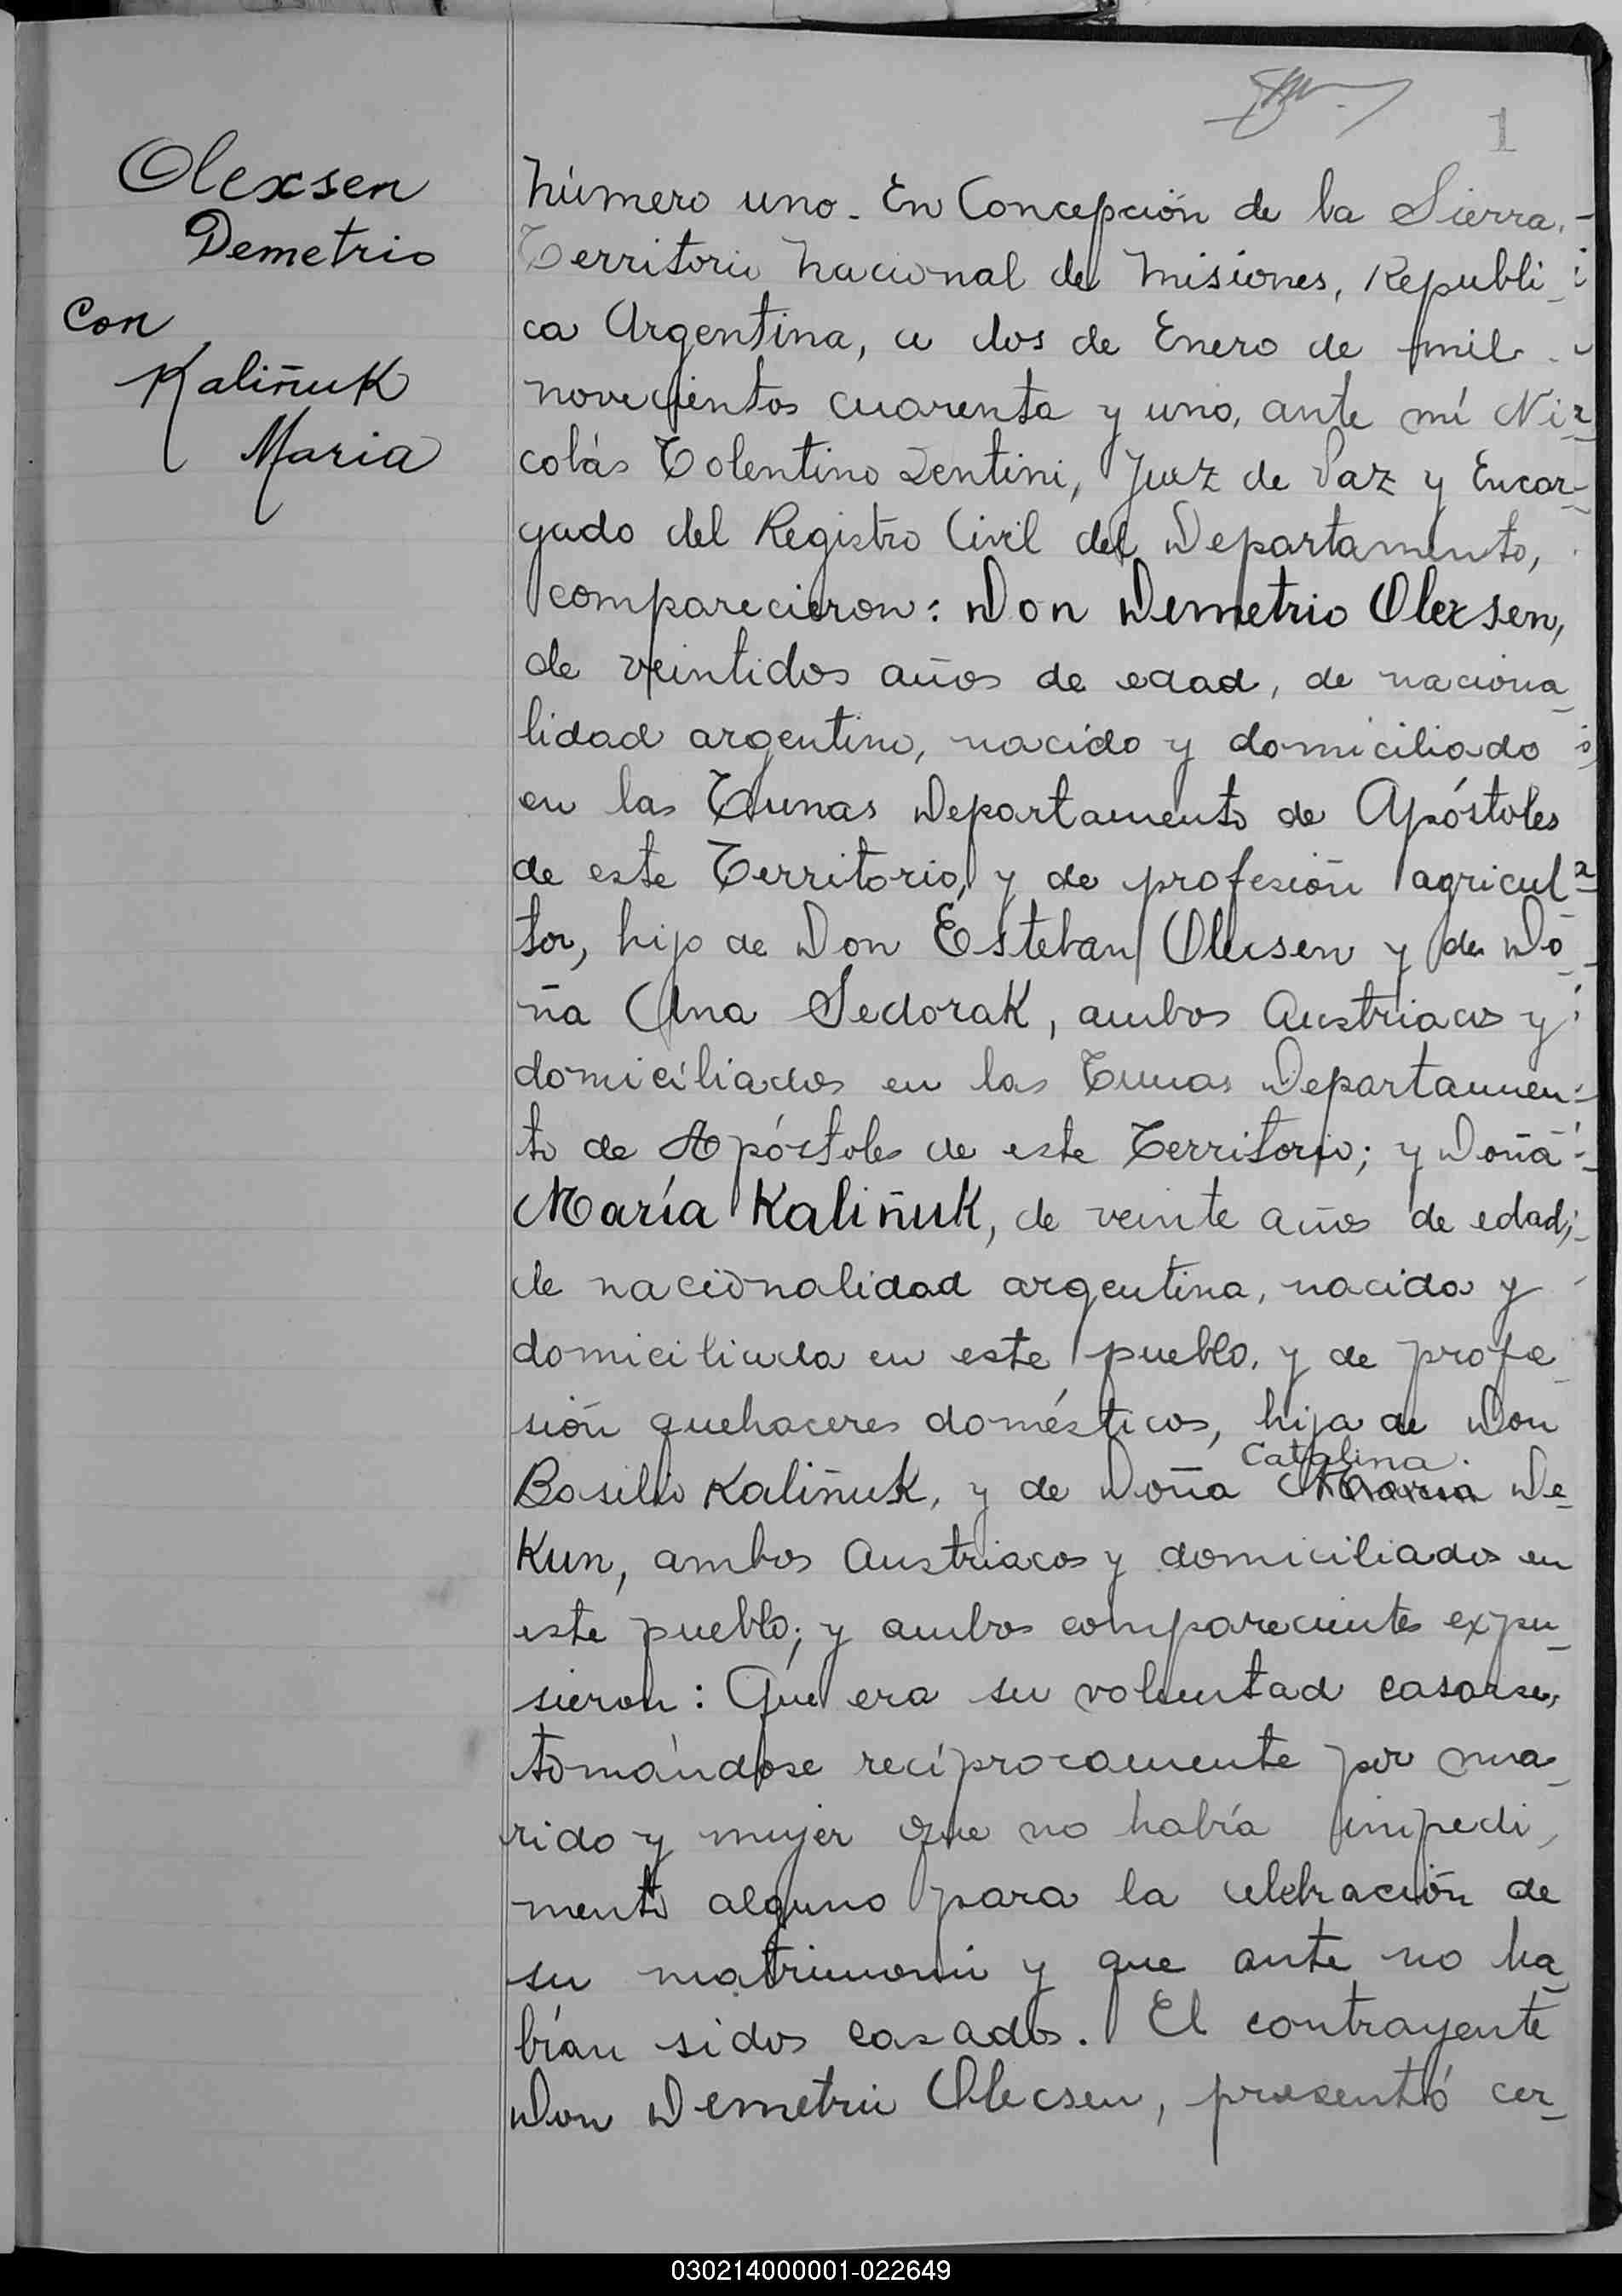 1
Olexsen
Demetrio
con
Kaliñuk
Maria
Número uno. En Concepción de la Sierra,
Territorio Nacional de Misiones, Republi-
ca Argentina, a dos de Enero de mil
novecientos cuarenta y uno, ante mí Ni-
colás Tolentino Lentini, Juez de Paz y Encar-
gado del Registro Civil del Departamento,
comparecieron: Don Demetrio Olexsen,
de veintidos años de edad, de naciona-
lidad argentino, nacido y domiciliado
en las Tunas Departamento de Apóstoles
de este Territorio, y de profesión agricul-
tor, hijo de Don Esteban Olecsen y de Do-
ña Ana Sedorak, ambos Austriacos y
domiciliados en las Tunas Departamen-
to de Apóstoles de este Territorio; y Doña
María Kaliñuk, de veinte años de edad,
de nacionalidad argentina, nacida y
domiciliada en este pueblo, y de profe-
sión quehaceres domésticos, hija de Don
Catalina
Basilio Kaliñuk, y de Doña Maria De-
Kun, ambos Austriacos y domiciliados en
este pueblo; y ambos comparecientes expu-
sieron: Que era su voluntad casarse,
tomándose recíprocamente por ma-
rido y mujer que no había impedi-
mento alguno para la celebración de
su matrimonio y que ante no ha-
bían sidos casados. El contrayente
Don Demetrio Olecsen, presentó cer-
030214000001-022649